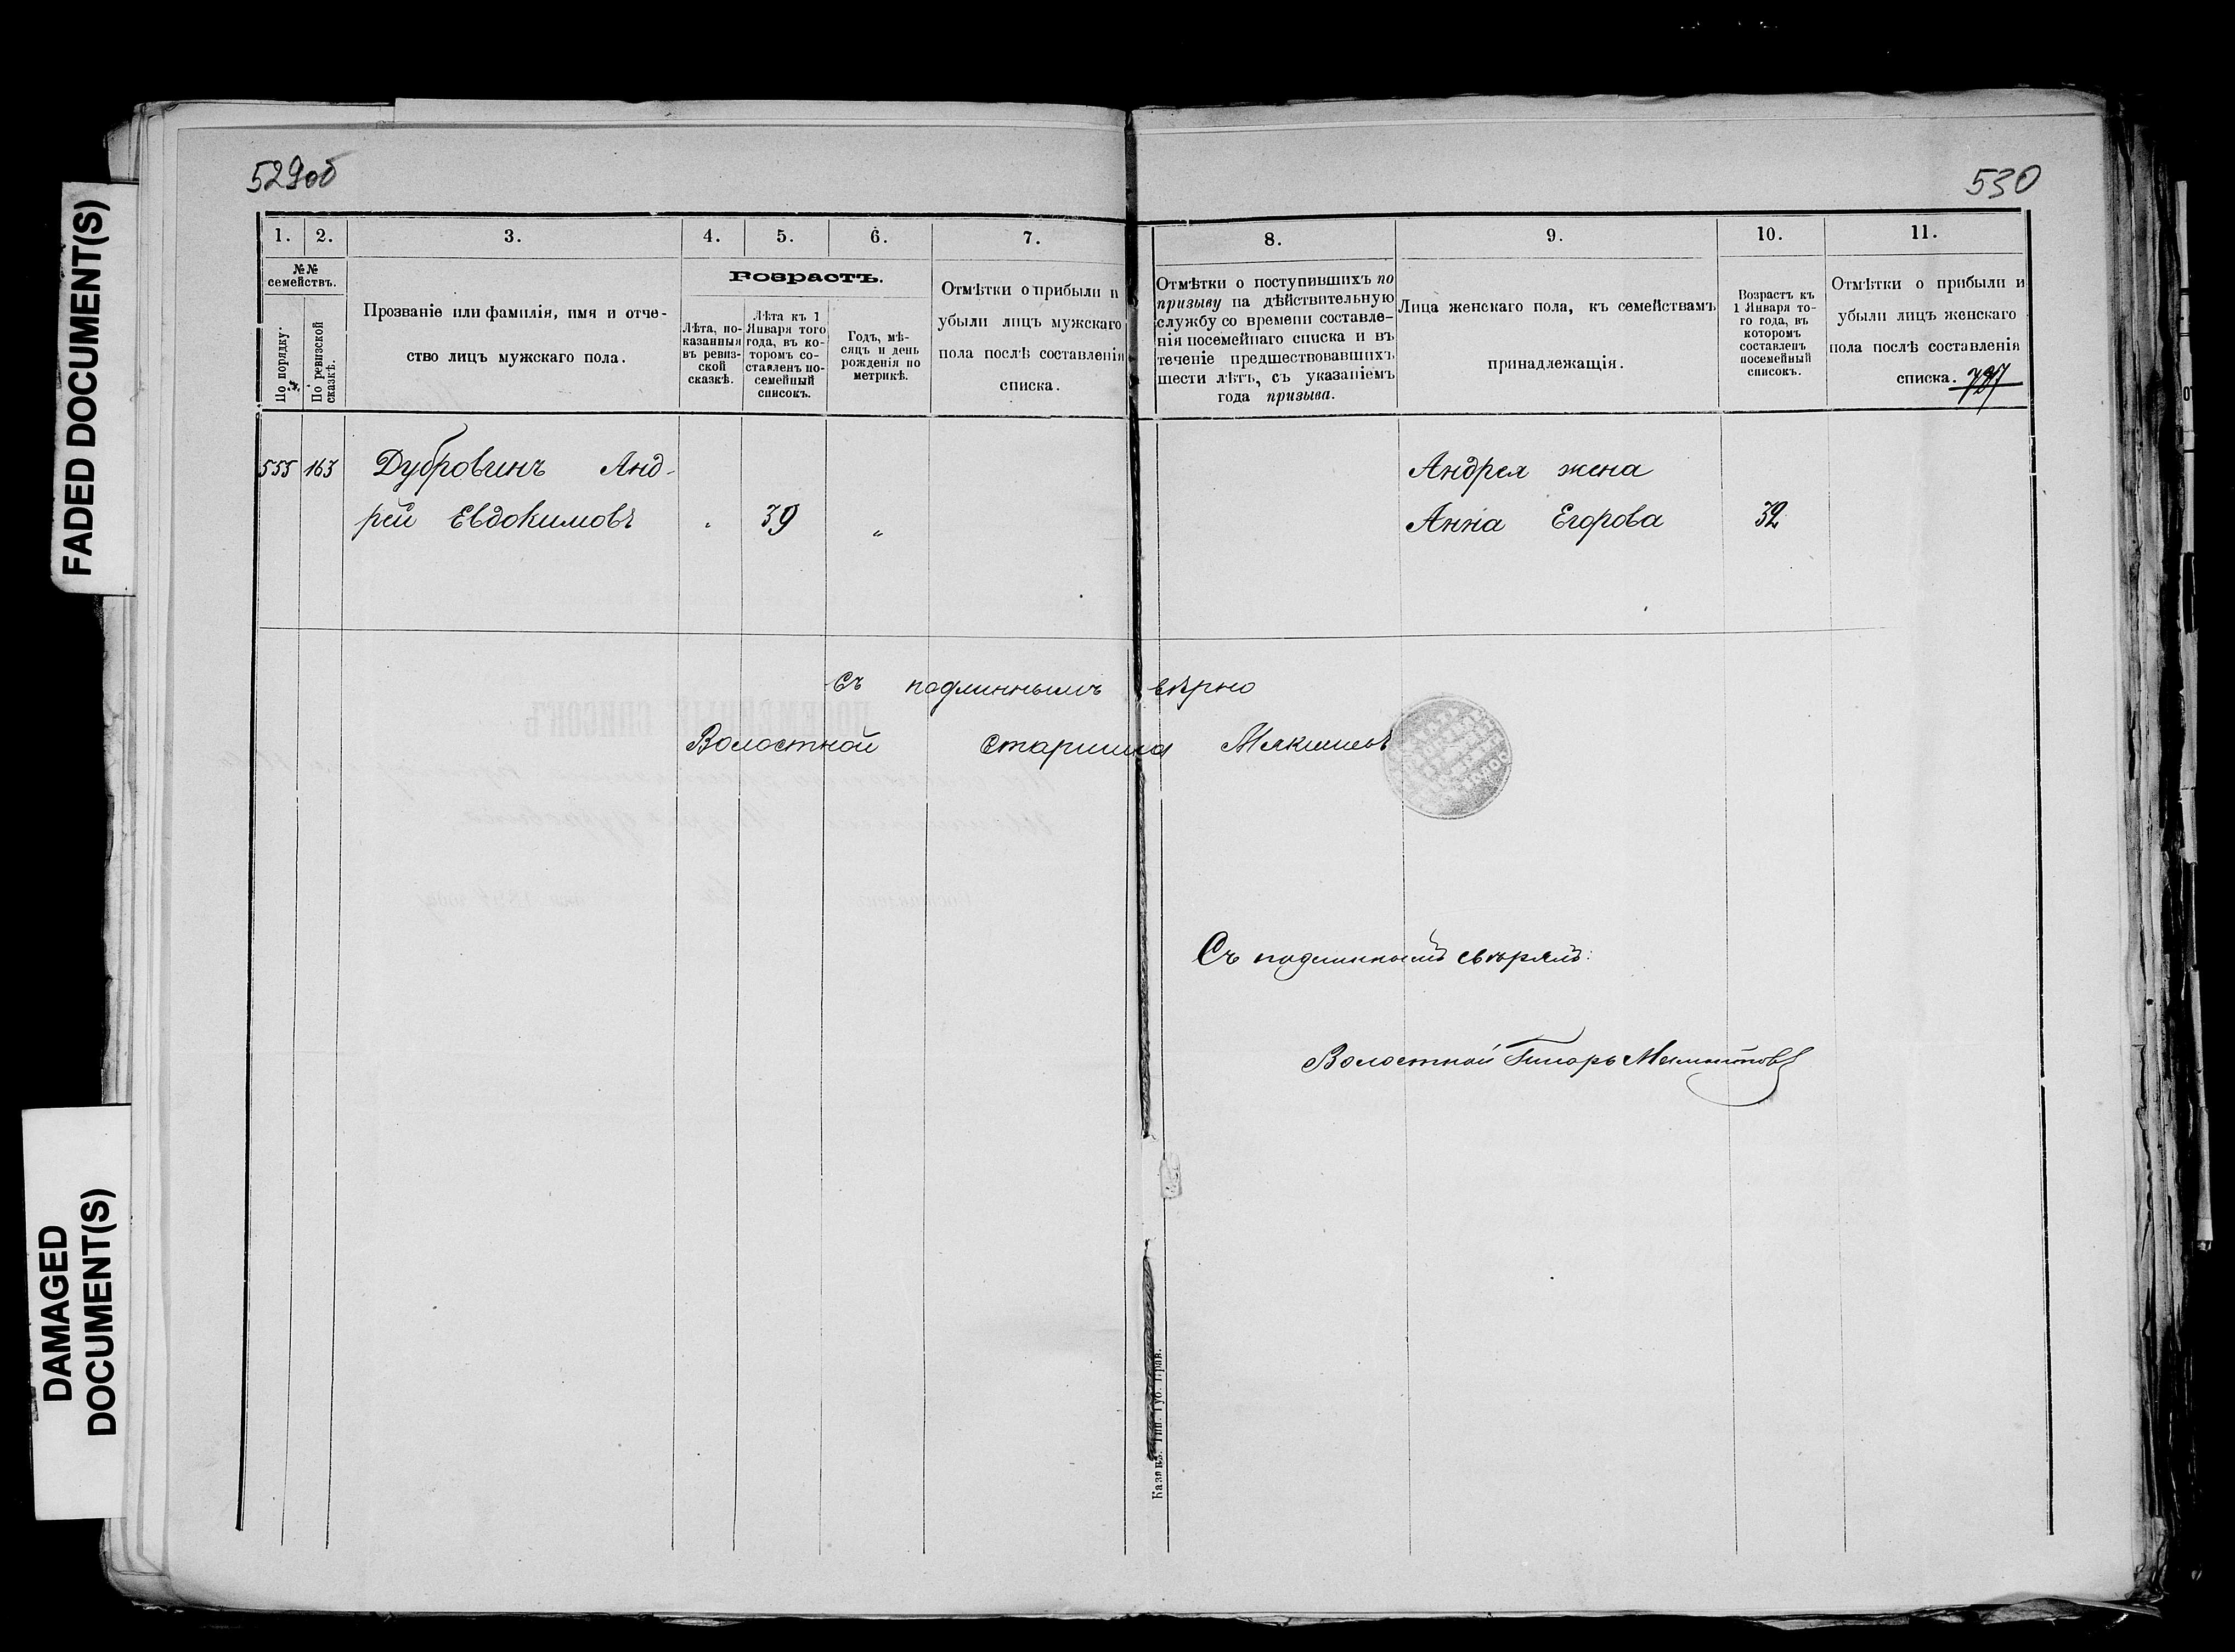 FADED DOCUMENT(S)
DAMAGED
DOCUMENT(S)
529об
530
1. 2. 3. 4. 5. 6. 7. 8. 9. 10. 11.
№№
семействъ.
По порядку.
По ревизской
сказкѣ.
Прозваніе или фамилія, имя и отче-
ство лицъ мужскаго пола.
Возрастъ.
Лѣта, по-
казанныя
въ ревиз-
ской
сказкѣ.
Лѣта къ 1
Января того
года, въ ко-
торомъ со-
ставленъ по-
семейный
списокъ.
Годъ, мѣ-
сяцъ и день
рожденія по
метрикѣ.
Отмѣтки о прибыли и
убыли лицъ мужскаго
пола послѣ составленія
списка.
Отмѣтки о поступившихъ по
призыву на дѣйствительную
службу со времени составле-
нія посемейнаго списка и въ
теченіе предшествовавшихъ
шести лѣтъ, съ указаніемъ
года призыва.
Лица женскаго пола, къ семействамъ
принадлежащія.
Возрастъ къ
1 Января то-
го года, въ
которомъ
составленъ
посемейный
списокъ.
Отмѣтки о прибыли и
убыли лицъ женскаго
пола послѣ составленія
списка.
555 163 Дубровинъ Анд-
рей Евдокимовъ 39 "
Андрея жена
Анна Егорова 32
Съ подлиннымъ вѣрно
Волостной старшина
Съ подлиннымъ свѣрялъ:
Волостной Писарь
Казань. Тип. Губ. Прав.